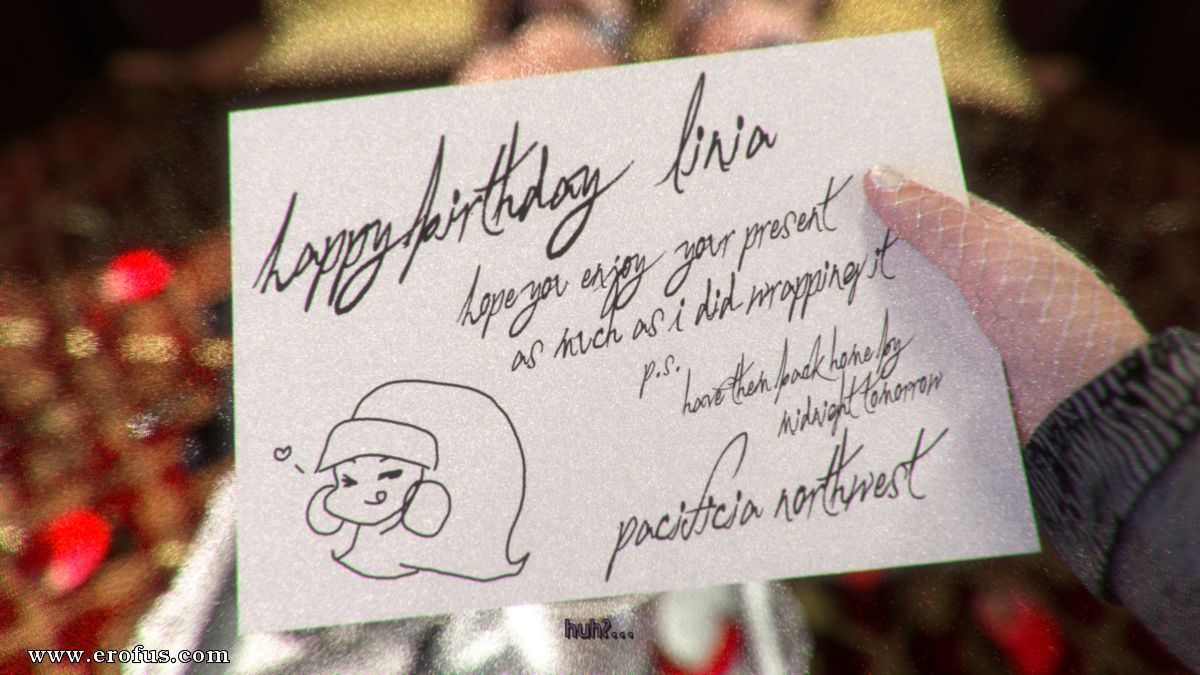 happy birthday linia
hope you enjoy your present
as much as i did wrapping it
p.s.
have them back home by
midnight tomorrow
pacificia northwest
huh?...
www.erofus.com